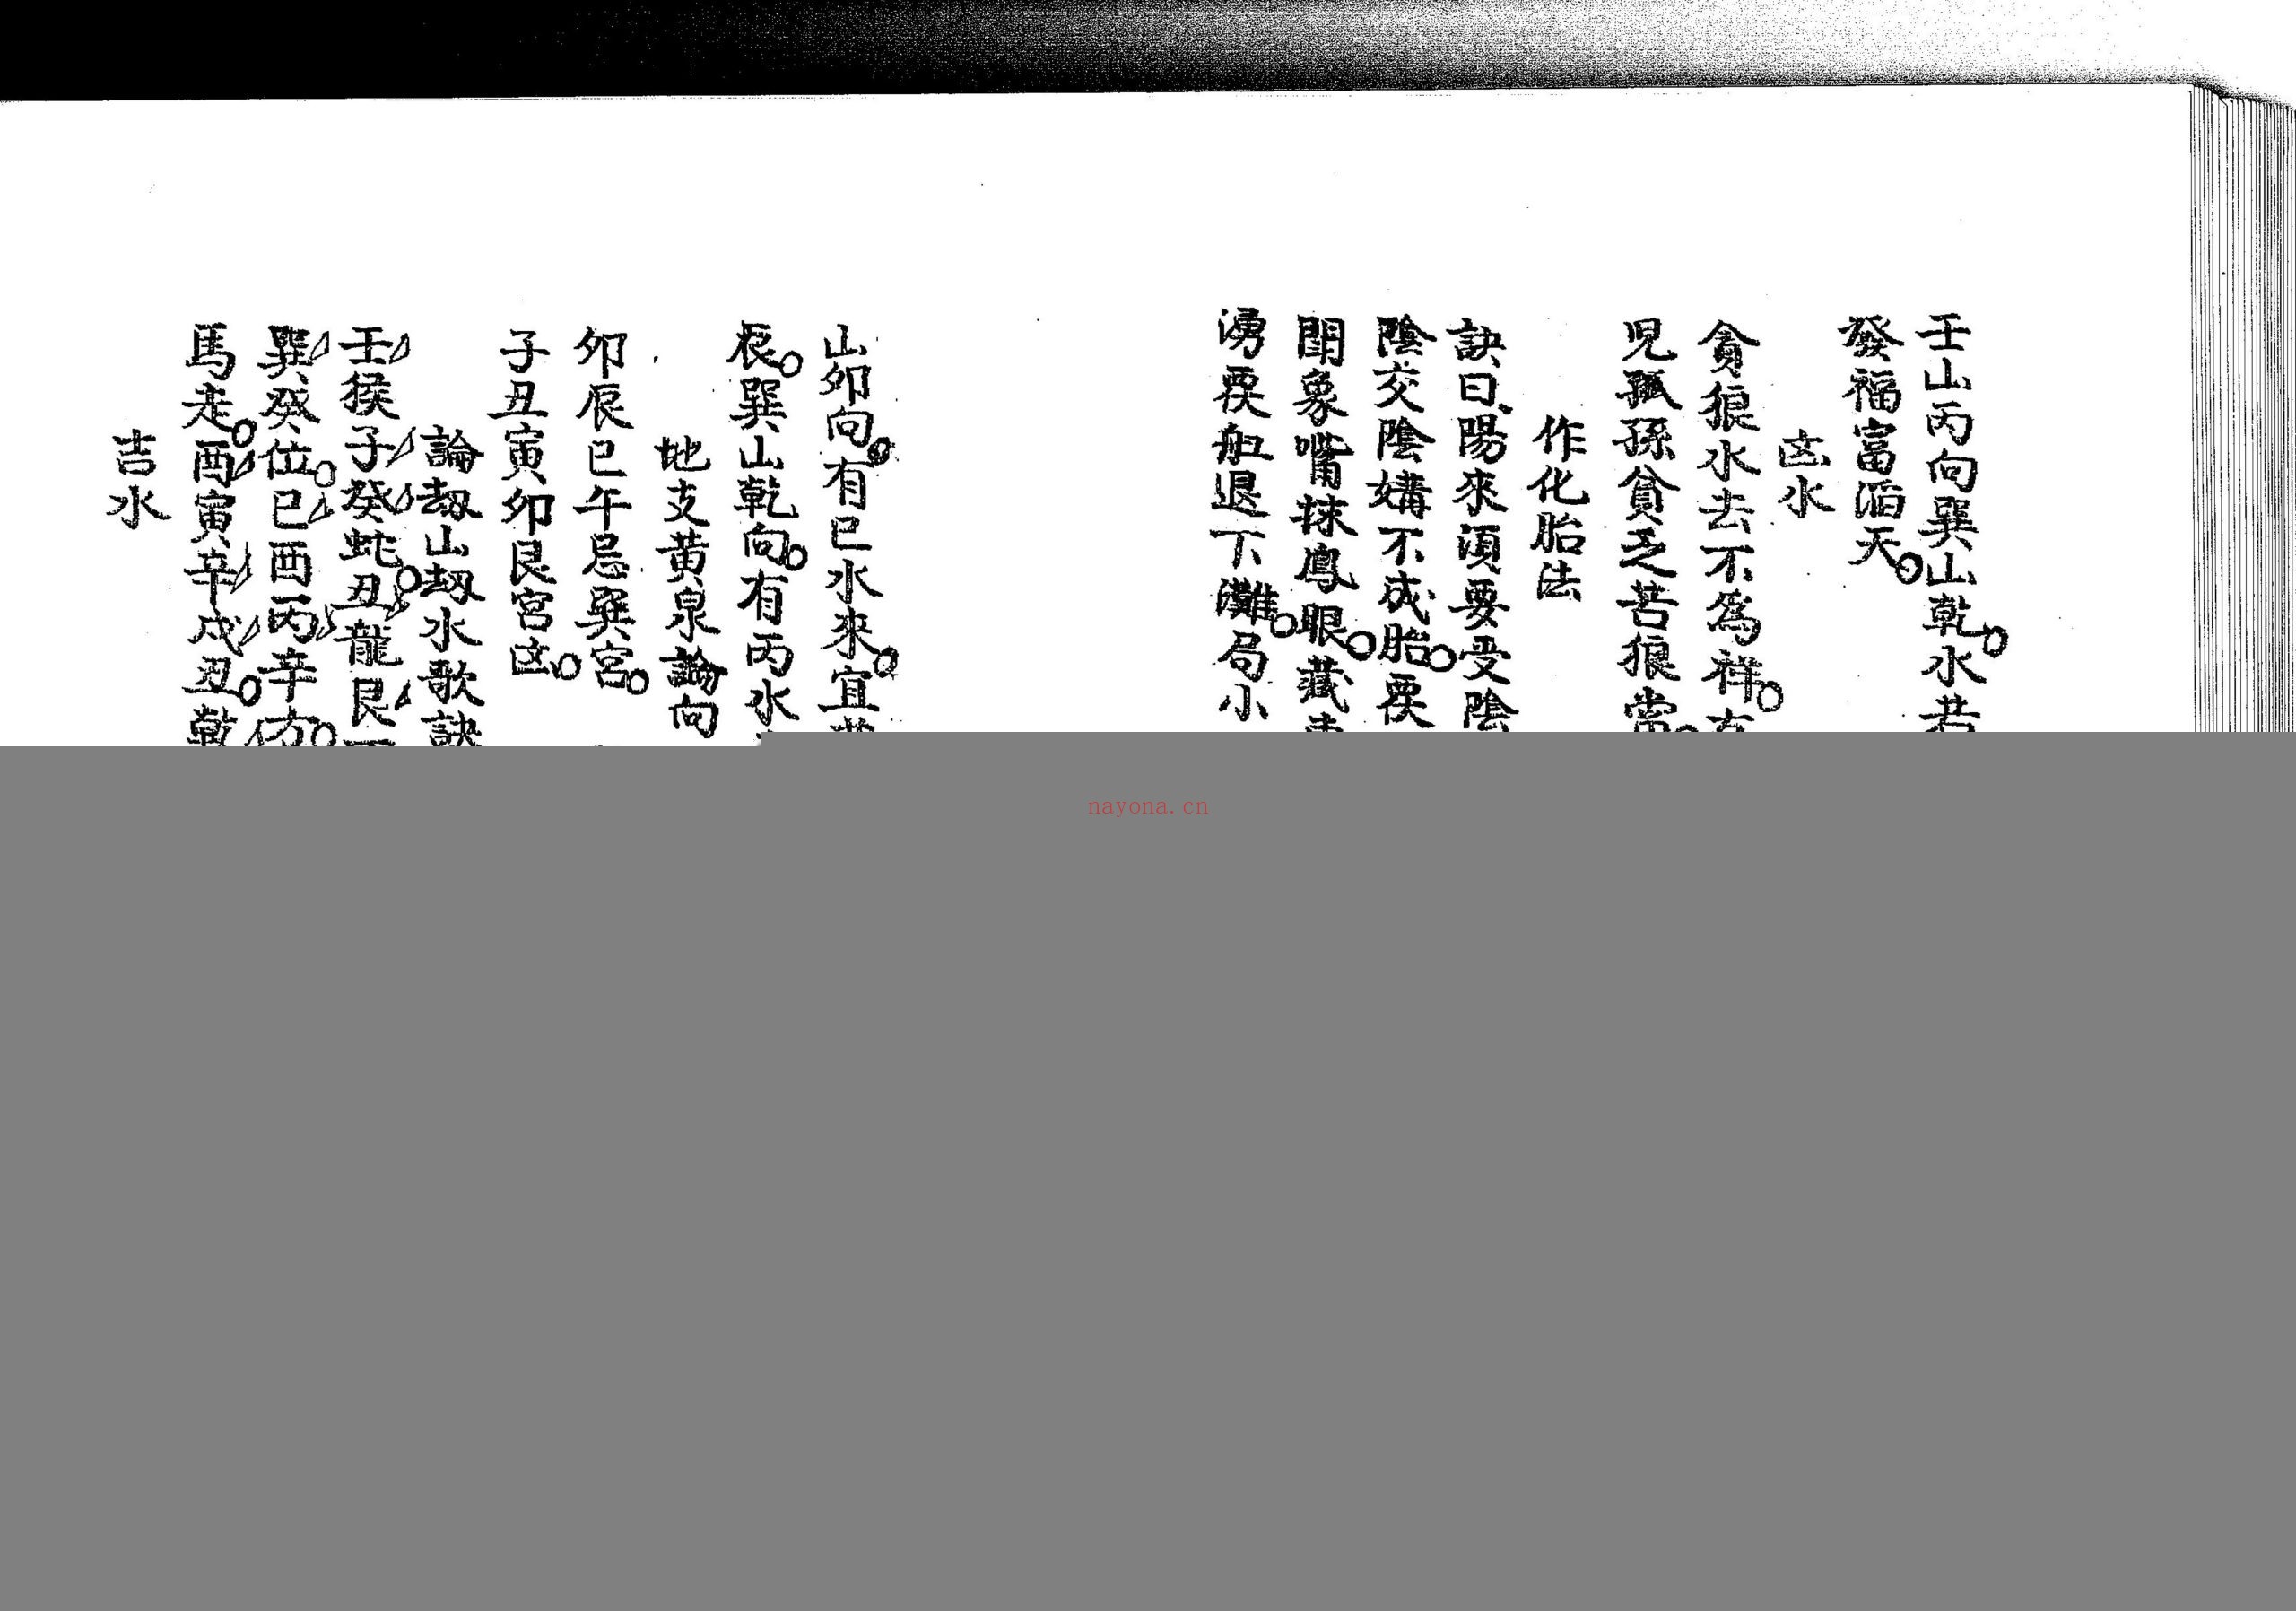 壬山丙向巽山乾水若
發福富滔天
凶水
貪狼水去不為祥
児孤孫貧乏苦狼當
作化胎法
訣曰陽來須要受陰
陰交陰媾不成胎要
開象嘴抹鳳眼藏
湧要舡退下灘局小
山卯向有巳水來宜
辰巽山乾向有丙水
地支黃泉論向
卯辰巳午忌巽宮
子丑寅卯艮宮凶
論刼山刼水歌訣
壬猴子癸蛇丑龍艮
巽癸位巳酉丙辛方
馬走酉寅辛戌丑乾
吉水
nayona.cn